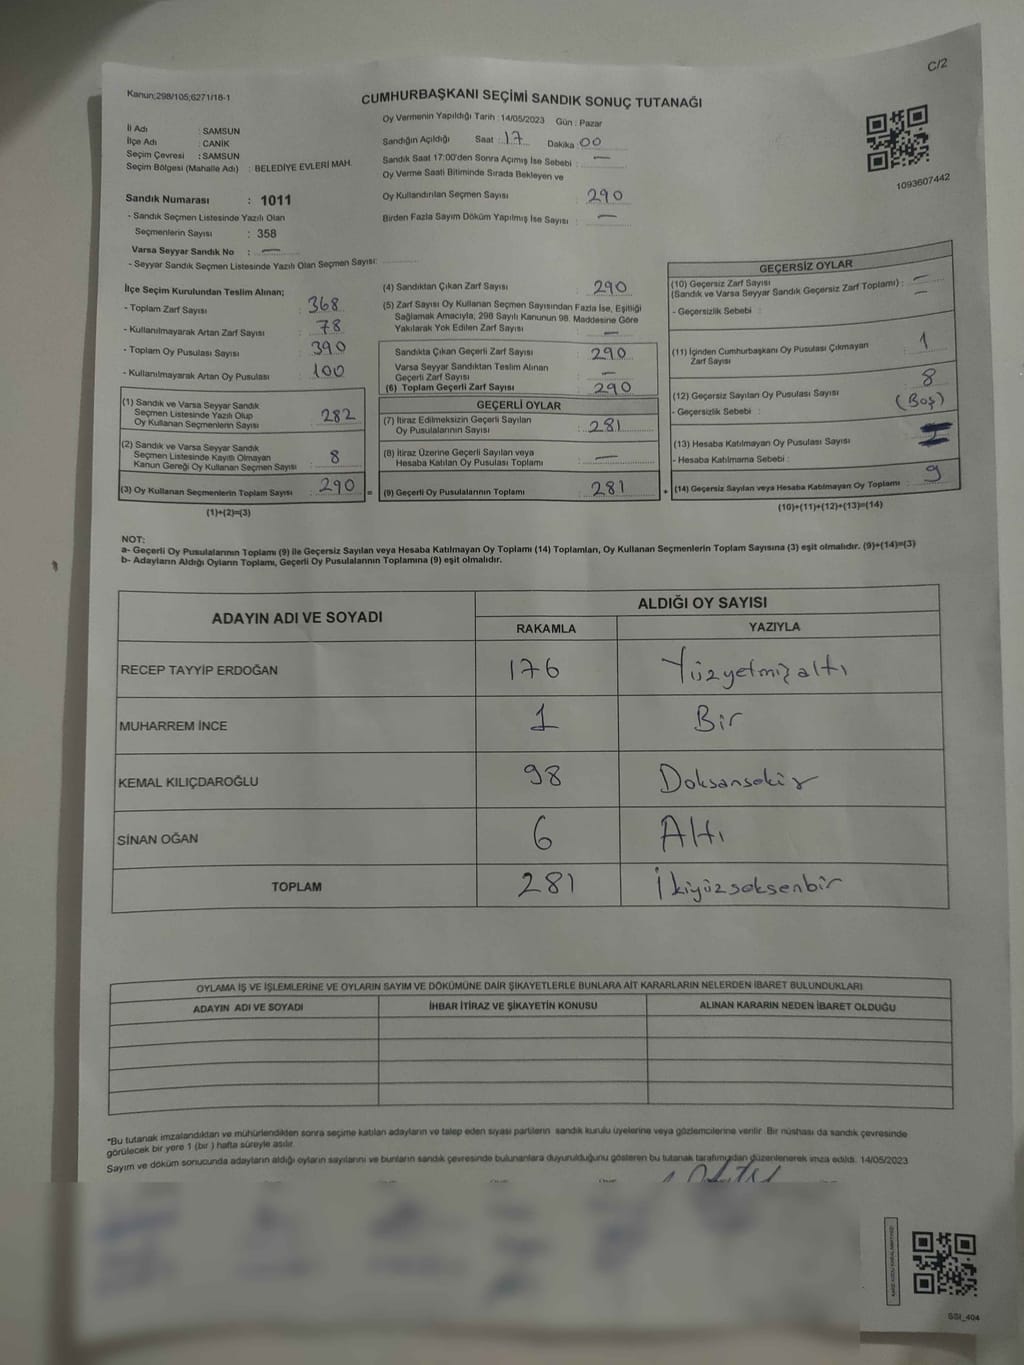 C/2
Kanun;298/105;6271/18-1
CUMHURBAŞKANI SEÇİMİ SANDIK SONUÇ TUTANAĞI
İl Adı : SAMSUN
İlçe Adı : CANİK
Seçim Çevresi : SAMSUN
Seçim Bölgesi (Mahalle Adı) : BELEDİYE EVLERİ MAH.
Sandık Numarası : 1011
- Sandık Seçmen Listesinde Yazılı Olan
Seçmenlerin Sayısı : 358
Varsa Seyyar Sandık No : —
- Seyyar Sandık Seçmen Listesinde Yazılı Olan Seçmen Sayısı:
Oy Vermenin Yapıldığı Tarih : 14/05/2023 Gün : Pazar
Sandığın Açıldığı Saat : 17 Dakika : 00
Sandık Saat 17:00'den Sonra Açımış İse Sebebi : —
Oy Verme Saati Bitiminde Sırada Bekleyen ve
Oy Kullandırılan Seçmen Sayısı : 290
Birden Fazla Sayım Döküm Yapılmış İse Sayısı : —
1093607442
İlçe Seçim Kurulundan Teslim Alınan;
- Toplam Zarf Sayısı : 368
- Kullanılmayarak Artan Zarf Sayısı : 78
- Toplam Oy Pusulası Sayısı : 390
- Kullanılmayarak Artan Oy Pusulası : 100
(1) Sandık ve Varsa Seyyar Sandık
Seçmen Listesinde Yazılı Olup
Oy Kullanan Seçmenlerin Sayısı : 282
(2) Sandık ve Varsa Seyyar Sandık
Seçmen Listesinde Kayıtlı Olmayan
Kanun Gereği Oy Kullanan Seçmen Sayısı : 8
(3) Oy Kullanan Seçmenlerin Toplam Sayısı : 290 =
(1)+(2)=(3)
(4) Sandıktan Çıkan Zarf Sayısı : 290
(5) Zarf Sayısı Oy Kullanan Seçmen Sayısından Fazla İse, Eşitliği
Sağlamak Amacıyla, 298 Sayılı Kanunun 98. Maddesine Göre
Yakılarak Yok Edilen Zarf Sayısı : —
Sandıkta Çıkan Geçerli Zarf Sayısı : 290
Varsa Seyyar Sandıktan Teslim Alınan
Geçerli Zarf Sayısı : —
(6) Toplam Geçerli Zarf Sayısı : 290
GEÇERLİ OYLAR
(7) İtiraz Edilmeksizin Geçerli Sayılan
Oy Pusulalarının Sayısı : 281
(8) İtiraz Üzerine Geçerli Sayılan veya
Hesaba Katılan Oy Pusulası Toplamı : —
(9) Geçerli Oy Pusulalarının Toplamı : 281 +
GEÇERSİZ OYLAR
(10) Geçersiz Zarf Sayısı
(Sandık ve Varsa Seyyar Sandık Geçersiz Zarf Toplamı) : —
- Geçersizlik Sebebi : —
(11) İçinden Cumhurbaşkanı Oy Pusulası Çıkmayan
Zarf Sayısı : 1
(12) Geçersiz Sayılan Oy Pusulası Sayısı : 8
- Geçersizlik Sebebi : (Boş)
(13) Hesaba Katılmayan Oy Pusulası Sayısı :
- Hesaba Katılmama Sebebi :
(14) Geçersiz Sayılan veya Hesaba Katılmayan Oy Toplamı : 9
(10)+(11)+(12)+(13)=(14)
NOT:
a- Geçerli Oy Pusulalarının Toplamı (9) ile Geçersiz Sayılan veya Hesaba Katılmayan Oy Toplamı (14) Toplamları, Oy Kullanan Seçmenlerin Toplam Sayısına (3) eşit olmalıdır. (9)+(14)=(3)
b- Adayların Aldığı Oyların Toplamı, Geçerli Oy Pusulalarının Toplamına (9) eşit olmalıdır.
ADAYIN ADI VE SOYADI ALDIĞI OY SAYISI
RAKAMLA YAZIYLA
RECEP TAYYİP ERDOĞAN 176 Yüzyetmişaltı
MUHARREM İNCE 1 Bir
KEMAL KILIÇDAROĞLU 98 Doksansekiz
SİNAN OĞAN 6 Altı
TOPLAM 281 İkiyüzseksenbir
OYLAMA İŞ VE İŞLEMLERİNE VE OYLARIN SAYIM VE DÖKÜMÜNE DAİR ŞİKAYETLERLE BUNLARA AİT KARARLARIN NELERDEN İBARET BULUNDUKLARI
ADAYIN ADI VE SOYADI İHBAR İTİRAZ VE ŞİKAYETİN KONUSU ALINAN KARARIN NEDEN İBARET OLDUĞU
*Bu tutanak imzalandıktan ve mühürlendikten sonra seçime katılan adayların ve talep eden siyasi partilerin sandık kurulu üyelerine veya gözlemcilerine verilir. Bir nüshası da sandık çevresinde
görülecek bir yere 1 (bir ) hafta süreyle asılır.
Sayım ve döküm sonucunda adayların aldığı oyların sayılarını ve bunların sandık çevresinde bulunanlara duyurulduğunu gösteren bu tutanak tarafımızdan düzenlenerek imza edildi. 14/05/2023
SSI_404